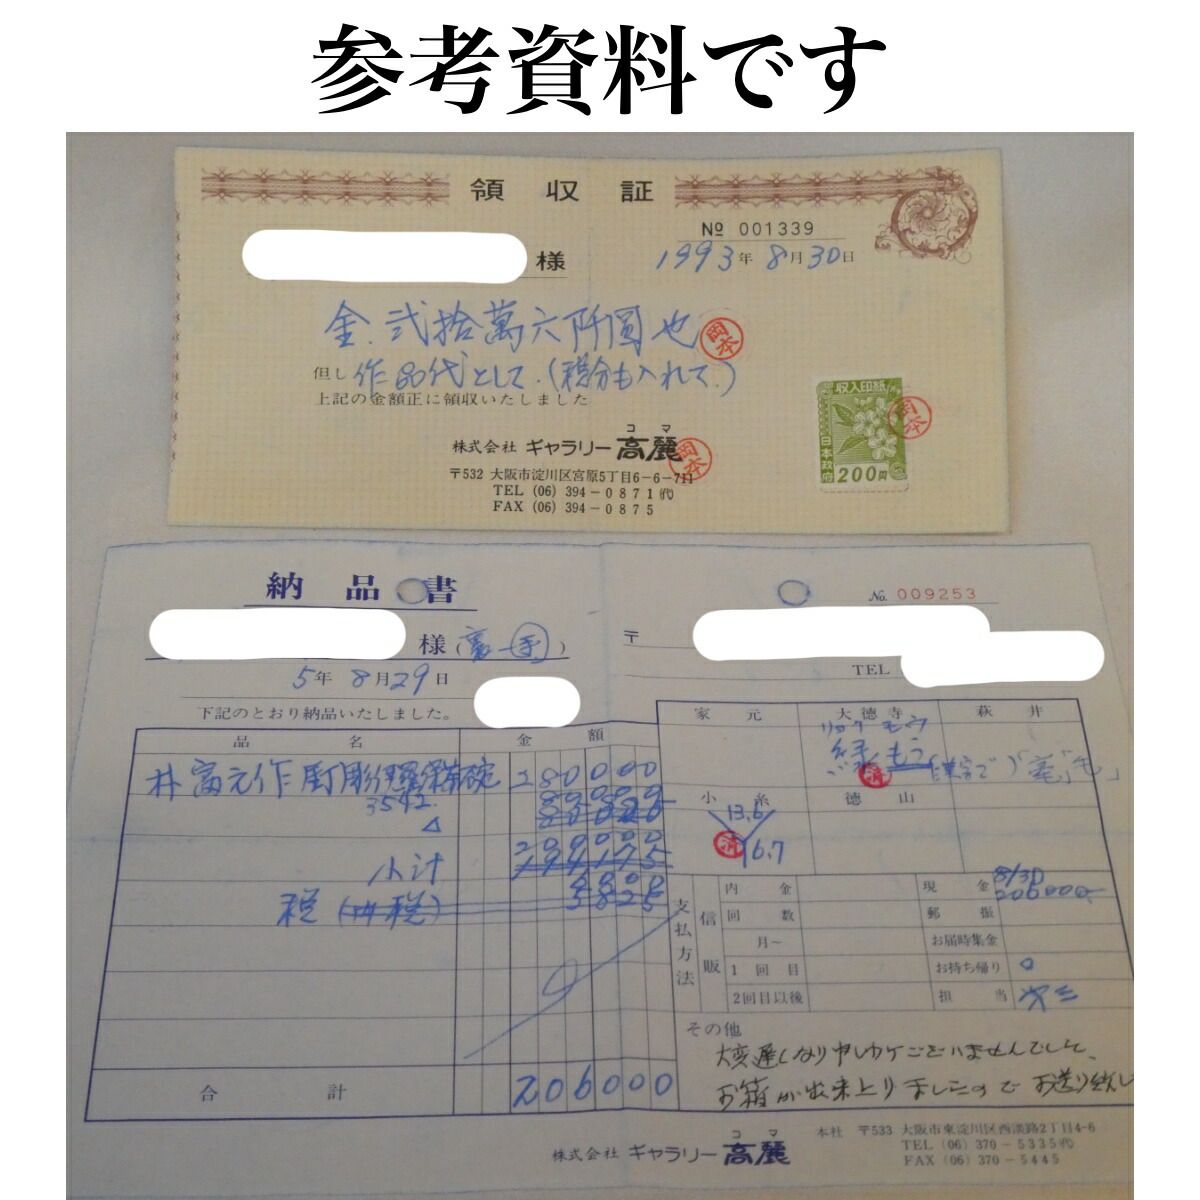 参考資料です
領収証
№ 001339
様
1993年8月30日
金.弐拾萬六阡圓也
岡本
但し 作品代として.(税分も入れて.)
上記の金額正に領収いたしました
収入印紙
日本政府
200円
岡本
コマ
株式会社 ギャラリー 高麗
岡本
〒532 大阪市淀川区宮原5丁目6-6-711
TEL (06) 394-0871㈹
FAX (06) 394-0875
納品書
No. 009253
様
〒
TEL
5年8月29日
下記のとおり納品いたしました。
品名 金額
朴富元作 彫伊羅保茶碗 280000
3542
△
小計 200000
税(内税)
合計 206000
家元 大徳寺 萩井
リョク モウ
緑毛
済
小糸 徳山
13.6
済
6.7
支払方法
信販
内金
回数
月~
1回目
2回目以後
現金 8/30 206000.
郵振
お届時集金
お持ち帰り ○
担当
その他
大変遅くなり申しワケございませんでした、
お箱が出来上りましたので お送り致し
コマ
株式会社 ギャラリー 高麗
本社 〒533 大阪市東淀川区西淡路2丁目4-6
TEL (06) 370-5335代
FAX (06) 370-5445